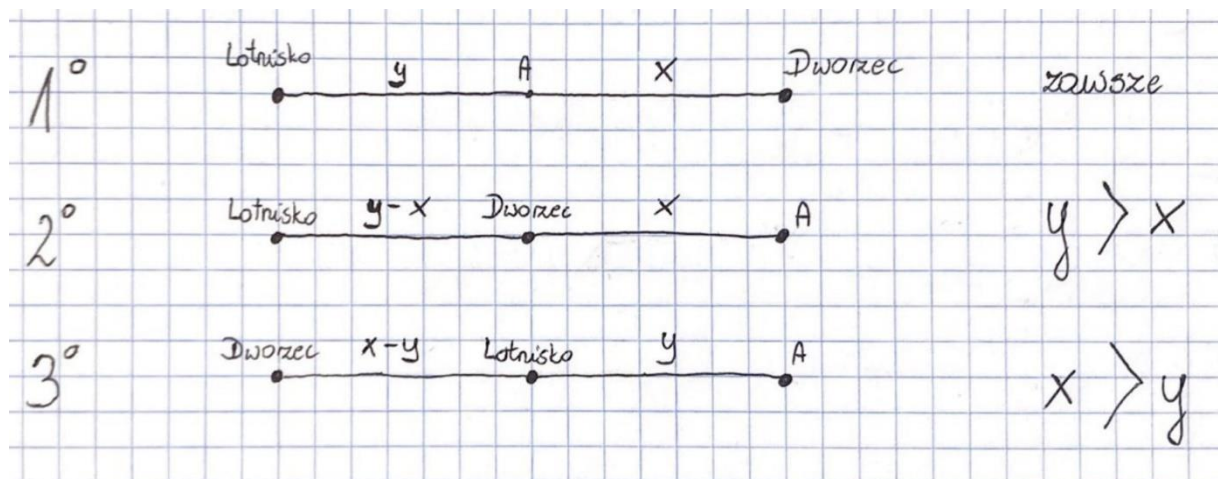 1° Lotnisko y A x Dworzec zawsze
2° Lotnisko y-x Dworzec x A y > x
3° Dworzec x-y Lotnisko y A x > y